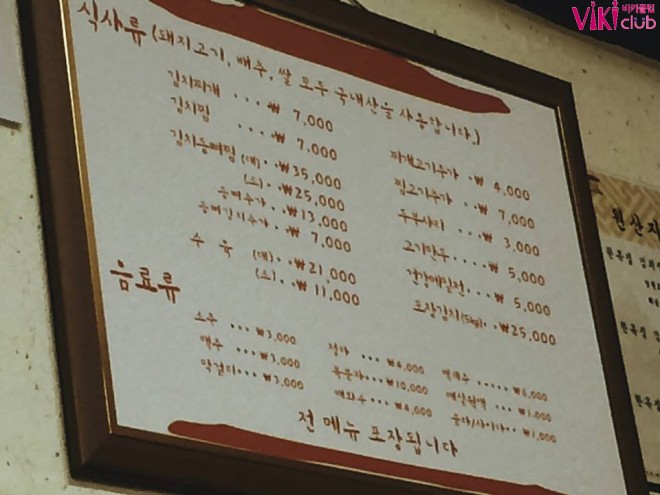 비키클럽
ViKi club
식사류 (돼지고기, 배추, 쌀 모두 국내산을 사용합니다.)
김치찌개 ... ₩ 7,000
김치찜 ... ₩ 7,000
김치등뼈찜 (대) . ₩35,000
(소) . ₩25,000
등뼈추가 .. ₩13,000
등뼈김치추가 .. ₩ 7,000
수육 (대) . . ₩21,000
(소) . . ₩ 11,000
찌개고기추가 . ₩ 4,000
찜고기추가 .. ₩ 7,000
두부사리 ... ₩ 3,000
고기만두 .. ₩ 5,000
건강메밀전 .. ₩ 5,000
포장김치(5kg) . . ₩25,000
음료류
소주 ... ₩3,000
맥주 ... ₩3,000
막걸리 ... ₩3,000
청하 ... ₩4,000
복분자 ... ₩10,000
매화수 ... ₩4,000
백세주 ..... ₩6,000
매실원액 ... ₩1,000
콜라/사이다 .. ₩1,000
전 메뉴 포장됩니다
원산지